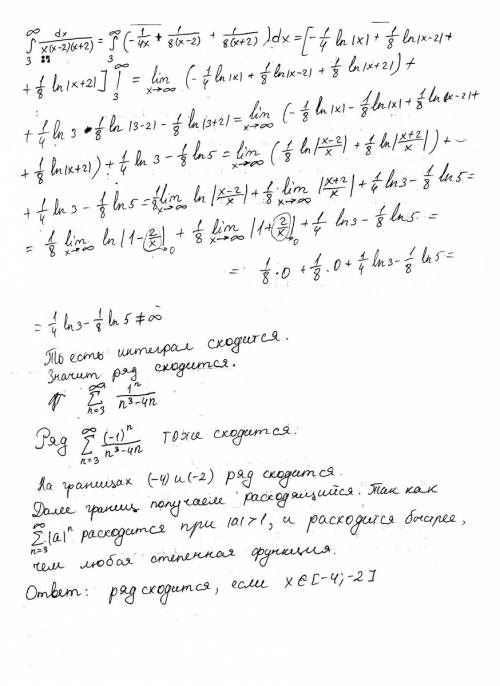 ∫_3^∞ dx/(x(x-2)(x+2)) = ∫_3^∞ (-1/(4x) + 1/(8(x-2)) + 1/(8(x+2)))dx = [-1/4 ln|x| + 1/8 ln|x-2| +
+ 1/8 ln|x+2|] |_3^∞ = lim_{x→∞} (-1/4 ln|x| + 1/8 ln|x-2| + 1/8 ln|x+2|) +
+ 1/4 ln 3 - 1/8 ln|3-2| - 1/8 ln|3+2| = lim_{x→∞} (-1/8 ln|x| - 1/8 ln|x| + 1/8 ln|x-2| +
+ 1/8 ln|x+2|) + 1/4 ln 3 - 1/8 ln 5 = lim_{x→∞} (1/8 ln|(x-2)/x| + 1/8 ln|(x+2)/x|) +
+ 1/4 ln 3 - 1/8 ln 5 = 1/8 lim_{x→∞} ln|(x-2)/x| + 1/8 lim_{x→∞} |(x+2)/x| + 1/4 ln 3 - 1/8 ln 5 =
= 1/8 lim_{x→∞} ln|1 - 2/x| + 1/8 lim_{x→∞} |1 + 2/x| + 1/4 ln 3 - 1/8 ln 5 =
→0 →0
= 1/8 · 0 + 1/8 · 0 + 1/4 ln 3 - 1/8 ln 5 =
= 1/4 ln 3 - 1/8 ln 5 ≠ ∞
То есть интеграл сходится.
Значит ряд сходится.
∑_{n=3}^∞ 1^n/(n^3-4n)
Ряд ∑_{n=3}^∞ (-1)^n/(n^3-4n) тоже сходится.
На границах (-4) и (-2) ряд сходится.
Далее границ получаем расходящийся. Так как
∑_{n=3}^∞ |a|^n расходится при |a|>1, и расходится быстрее,
чем любая степенная функция.
Ответ: ряд сходится, если x∈[-4;-2]